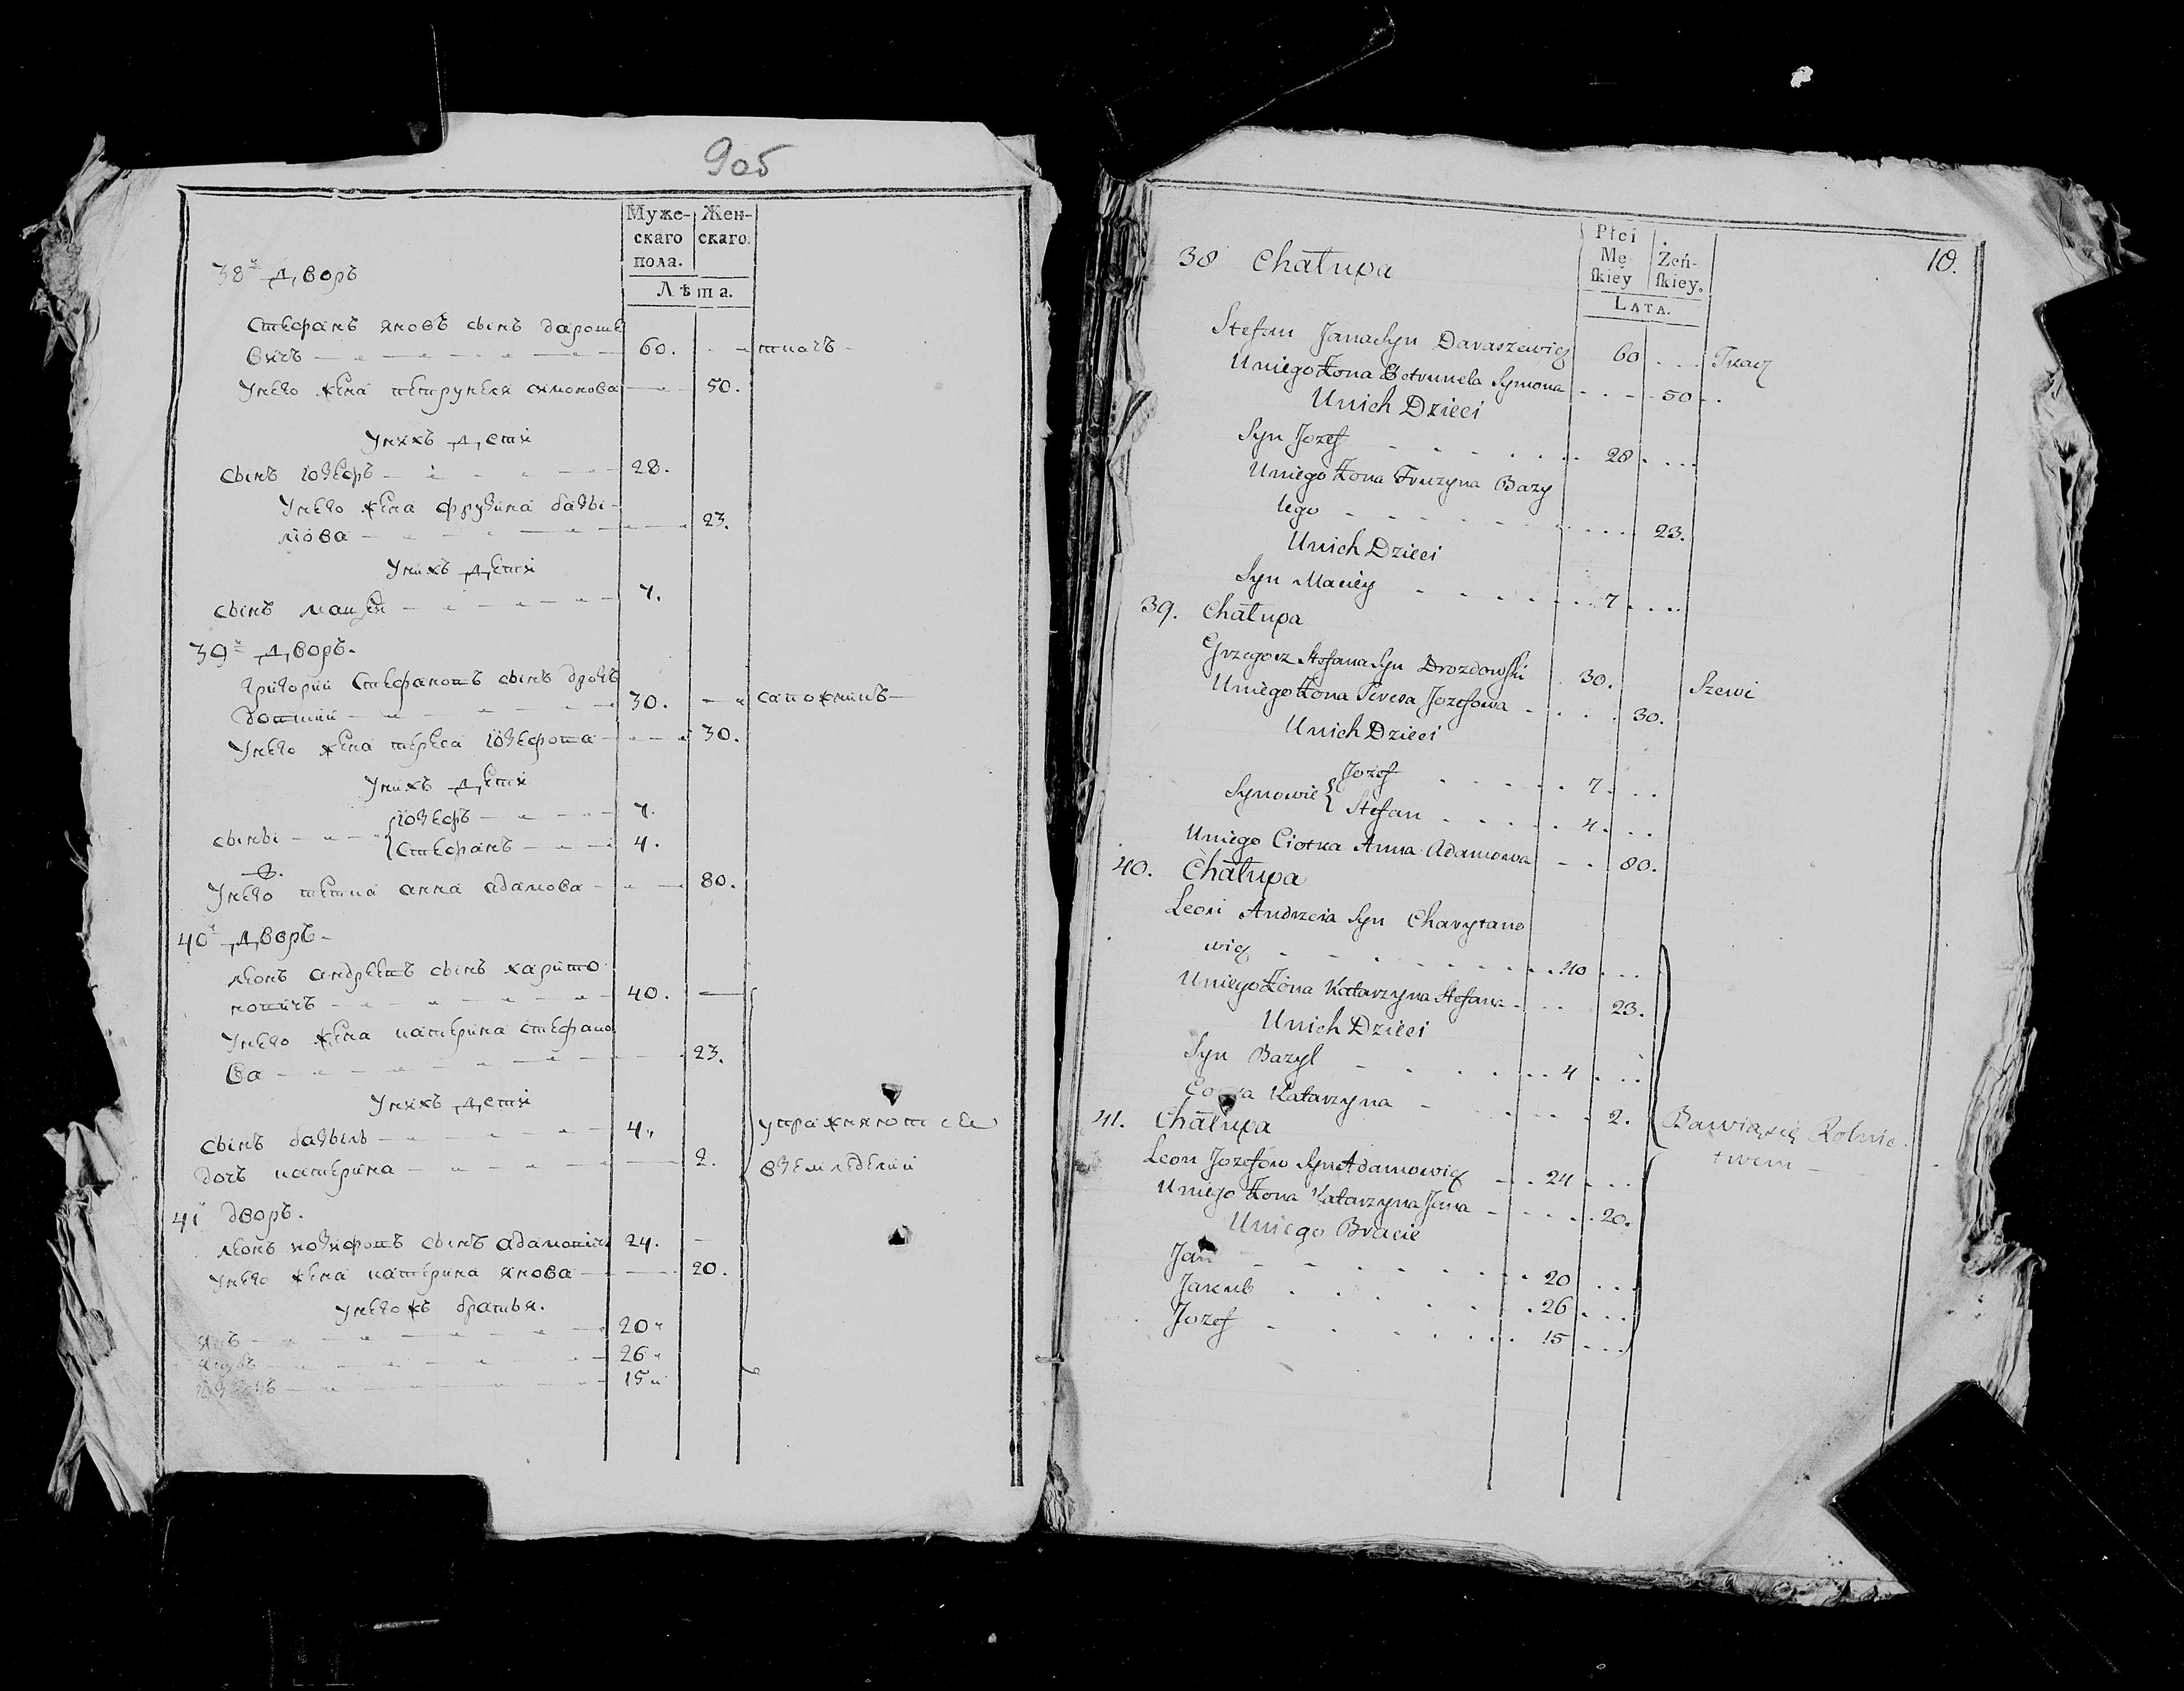 905
Муже-
скаго
пола.
Жен-
скаго.
Лѣта.
38й дворъ
Стефанъ яновъ сынъ дароше
вичъ 60. ткачъ
Унего жена петрунеля симонова 50.
Унихъ дети
сынъ іозефъ 28.
Унего жена фрузина базы-
ліова 23.
Унихъ дети
сынъ мацей 7.
39й дворъ.
григорий Стефановъ сынъ дроз
довский 30. сапожникъ
Унего жена тереса іозефова 30.
Унихъ дети
іозефъ 7.
сыны
Стефанъ 4.
Унего тетка анна адамова 80.
40й дворъ
леонъ андреевъ сынъ харито
новичъ 40.
Унего жена катерина стефано
ва 23.
Унихъ дети
сынъ базыль 4
дочъ катерина 2.
упражняются
вземледелии
41й дворъ.
леонъ иозифовъ сынъ адамовичъ 24.
Унего жена катерина янова 20.
унегожъ братья.
янъ 20
якубъ 26
іозефъ 15
10.
Płci
Mę
skiey
Żeń-
skiey.
LATA.
38 Chałupa
Stefan Jana Syn Daraszewicz 60 Tkacz
Uniego Żona Petrunela Symona 50
Unich Dzieci
Syn Jozef 28
Uniego Żona Fruzyna Bazy
lego 23.
Unich Dzieci
Syn Maciey 7
39. Chałupa
Grzegorz Stefana Syn Drozdowski 30. Szewc
Uniego Żona Teresa Jozefowa 30.
Unich Dzieci
Jozef 7
Synowie
Stefan 4
Uniego Ciotka Anna Adamowa 80.
40. Chałupa
Leon Andrzeia Syn Charytano
wicz 40
Uniego Żona Katarzyna Stefana 23.
Unich Dzieci
Syn Bazyl 4
Katarzyna 2.
Bawią się Rolnic
twem
41. Chałupa
Leon Jozefow Syn Adamowicz 24
Uniego Żona Katarzyna Jana 20.
Uniego Bracie
Jan 20
Jakub 26
Jozef 15